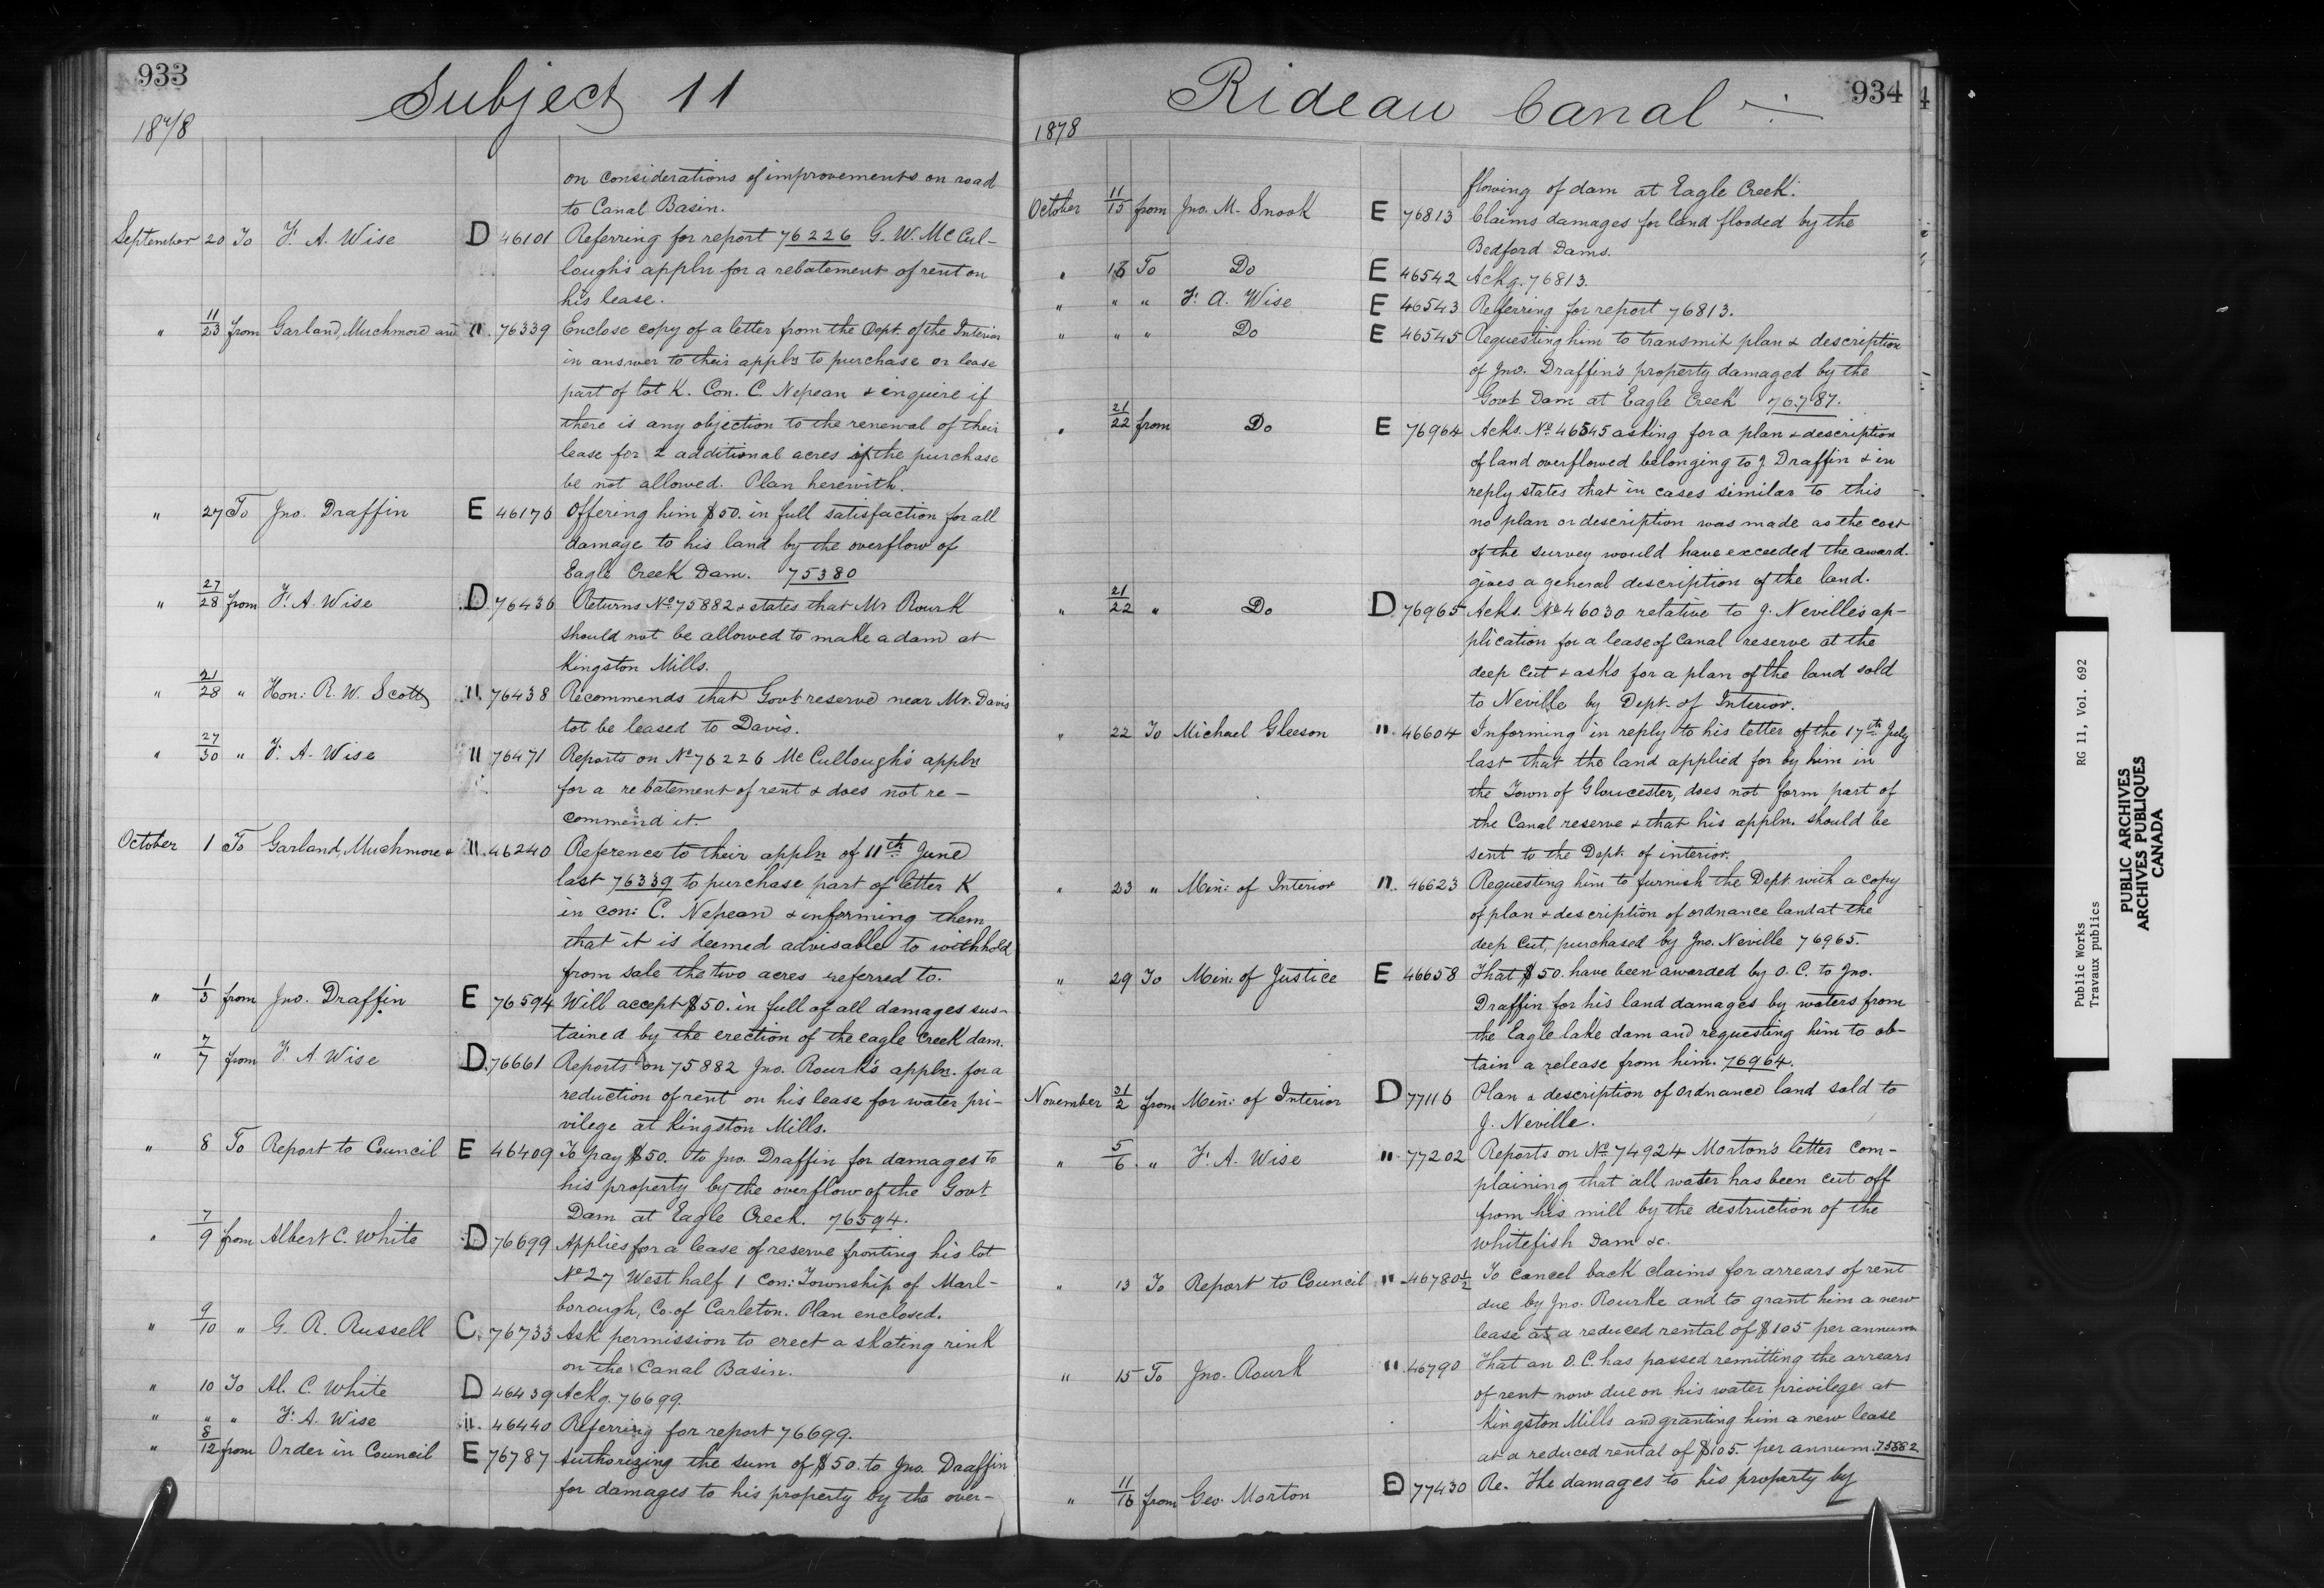 933
Subject 11
1878
on considerations of improvements on road
to Canal Basin.
September 20 To F. A. Wise D 46101 Referring for report 76226 G. W. McCul-
lough's appln for a rebatement of rent on
his lease.
" 11/23 from Garland, Muchmore and " 76339 Enclose copy of a letter from the Dept. of the Interior
in answer to their appln to purchase or lease
part of lot K. Con. C. Nepean & inquire if
there is any objection to the renewal of their
lease for 2 additional acres if the purchase
be not allowed. Plan herewith.
" 27 To Jno. Draffin E 46176 Offering him $50. in full satisfaction for all
damage to his land by the overflow of
Eagle Creek Dam. 75380
" 27/28 from F. A. Wise D 76436 Returns No 75882 & states that Mr Rourk
should not be allowed to make a dam at
Kingston Mills.
" 21/28 " Hon: R. W. Scott " 76438 Recommends that Govt reserve near Mr. Davis
lot be leased to Davis.
" 27/30 " F. A. Wise " 76471 Reports on No 76226 McCullough's appln
for a rebatement of rent & does not re-
commend it.
October 1 To Garland, Muchmore & " 46240 Reference to their appln of 11th June
last 76339 to purchase part of letter K
in con: C. Nepean & informing them
that it is deemed advisable to withhold
from sale the two acres referred to.
" 1/3 from Jno. Draffin E 76594 Will accept $50. in full of all damages sus-
tained by the erection of the eagle Creek dam.
" 7/7 from F. A Wise D. 76661 Reports on 75882 Jno. Rourk's appln. for a
reduction of rent on his lease for water pri-
vilege at Kingston Mills.
" 8 To Report to Council E 46409 To pay $50. to Jno. Draffin for damages to
his property by the overflow of the Govt
Dam at Eagle Creek. 76594.
" 7/9 from Albert C. White D 76699 Applies for a lease of reserve fronting his lot
No 27 West half 1 Con: Township of Marl-
borough, Co. of Carleton. Plan enclosed.
" 9/10 " G. R. Russell C. 76733 Ask permission to erect a skating rink
on the Canal Basin.
" 10 To Al. C. White D 46439 Ackg. 76699.
" " " F. A. Wise " 46440 Referring for report 76699.
" 8/12 from Order in Council E 76787 Authorizing the sum of $50. to Jno. Draffin
for damages to his property by the over-
Rideau Canal
934
1878
flowing of dam at Eagle Creek.
October 11/15 from Jno. M. Snook E 76813 Claims damages for land flooded by the
Bedford Dams.
" 16 To Do E 46542 Ackg. 76813.
" " " F. A. Wise E 46543 Referring for report 76813.
" " " Do E 46545 Requesting him to transmit plan & description
of Jno. Draffin's property damaged by the
Govt Dam at Eagle Creek 76787.
" 21/22 from Do E 76964 Acks. No 46545 asking for a plan & description
of land overflowed belonging to J Draffin & in
reply states that in cases similar to this
no plan or description was made as the cost
of the survey would have exceeded the award.
gives a general description of the land.
" 21/22 " Do D 76965 Acks. No 46030 relative to J. Neville's ap-
plication for a lease of Canal reserve at the
deep Cut & asks for a plan of the land sold
to Neville by Dept. of Interior.
" 22 To Michael Gleeson " 46604 Informing in reply to his letter of the 17th July
last that the land applied for by him in
the Town of Gloucester, does not form part of
the Canal reserve & that his appln. should be
sent to the Dept. of interior.
" 23 " Min: of Interior " 46623 Requesting him to furnish the Dept. with a copy
of plan & description of ordnance land at the
deep Cut, purchased by Jno. Neville 76965.
" 29 To Min: of Justice E 46658 That $50. have been awarded by O. C. to Jno.
Draffin for his land damages by waters from
the Eagle lake dam and requesting him to ob-
tain a release from him. 76964.
November 31/2 from Min: of Interior D 77116 Plan & description of Ordnance land sold to
J. Neville.
" 5/6 " F. A. Wise " 77202 Reports on No 74924 Morton's letter com-
plaining that all water has been cut off
from his mill by the destruction of the
Whitefish Dam &c.
" 13 To Report to Council " 46780½ To cancel back claims for arrears of rent
due by Jno. Rourke and to grant him a new
lease at a reduced rental of $105 per annum
" 15 To Jno. Rourk " 46790 That an O. C. has passed remitting the arrears
of rent now due on his water privilege at
Kingston Mills and granting him a new lease
at a reduced rental of $105. per annum. 75882
" 11/16 from Geo. Morton D 77430 Re. The damages to his property by
Public Works RG 11, Vol. 692
Travaux publics
PUBLIC ARCHIVES
ARCHIVES PUBLIQUES
CANADA